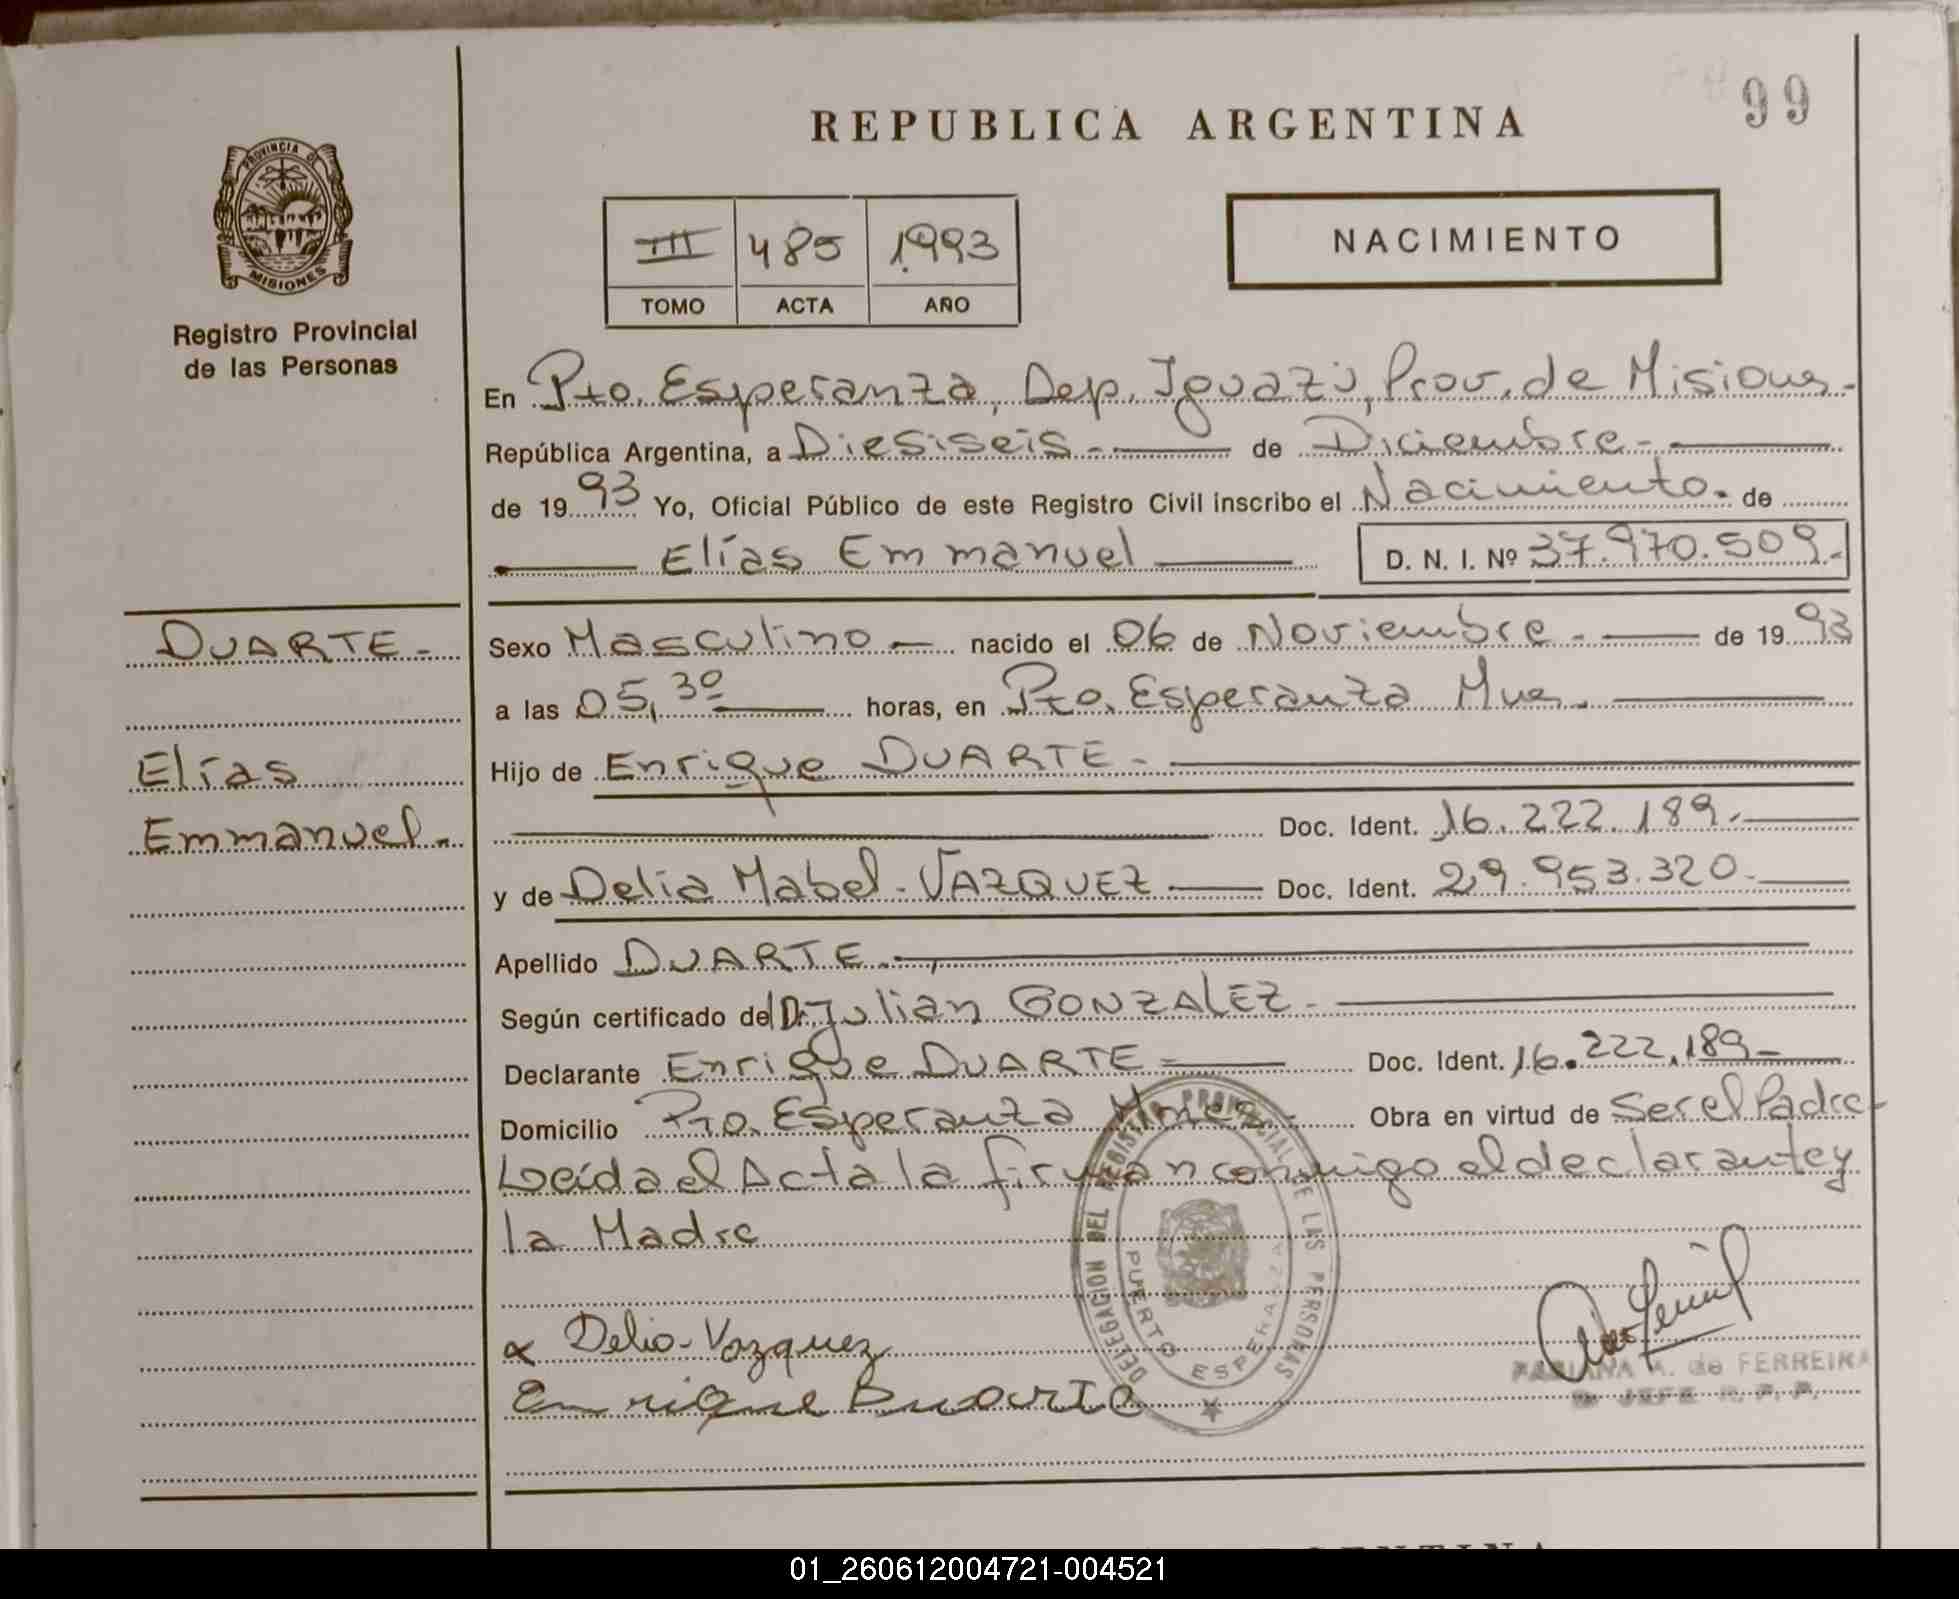 99
REPUBLICA ARGENTINA
PROVINCIA DE
MISIONES
Registro Provincial
de las Personas
III 485 1993
TOMO ACTA AÑO
NACIMIENTO
En Pto. Esperanza, Dep. Iguazú, Prov. de Misiones-
República Argentina, a Diesiseis - de Diciembre -
de 1993 Yo, Oficial Público de este Registro Civil inscribo el Nacimiento. de
Elías Emmanuel D. N. I. Nº 37.970.509.-
DUARTE -
Elías
Emmanuel.-
Sexo Masculino - nacido el 06 de Noviembre - de 1993
a las 05,30 horas, en Pto. Esperanza Mnes.
Hijo de Enrique DUARTE -
Doc. Ident. 16.222.189.-
y de Delia Mabel - VAZQUEZ - Doc. Ident. 29.953.320.-
Apellido DUARTE.-
Según certificado del Dr. Julian GONZALEZ -
Declarante Enrique DUARTE - Doc. Ident. 16.222.189-
Domicilio Pto. Esperanza Mnes - Obra en virtud de Ser el Padre-
Leída el Acta la firman conmigo el declarante y
la Madre
DELEGACION DEL REGISTRO PROVINCIAL DE LAS PERSONAS
PUERTO ESPERANZA
Delia - Vazquez
Enrique Duarte
FABIANA A. de FERREIRA
JEFE R. P. P.
01_260612004721-004521